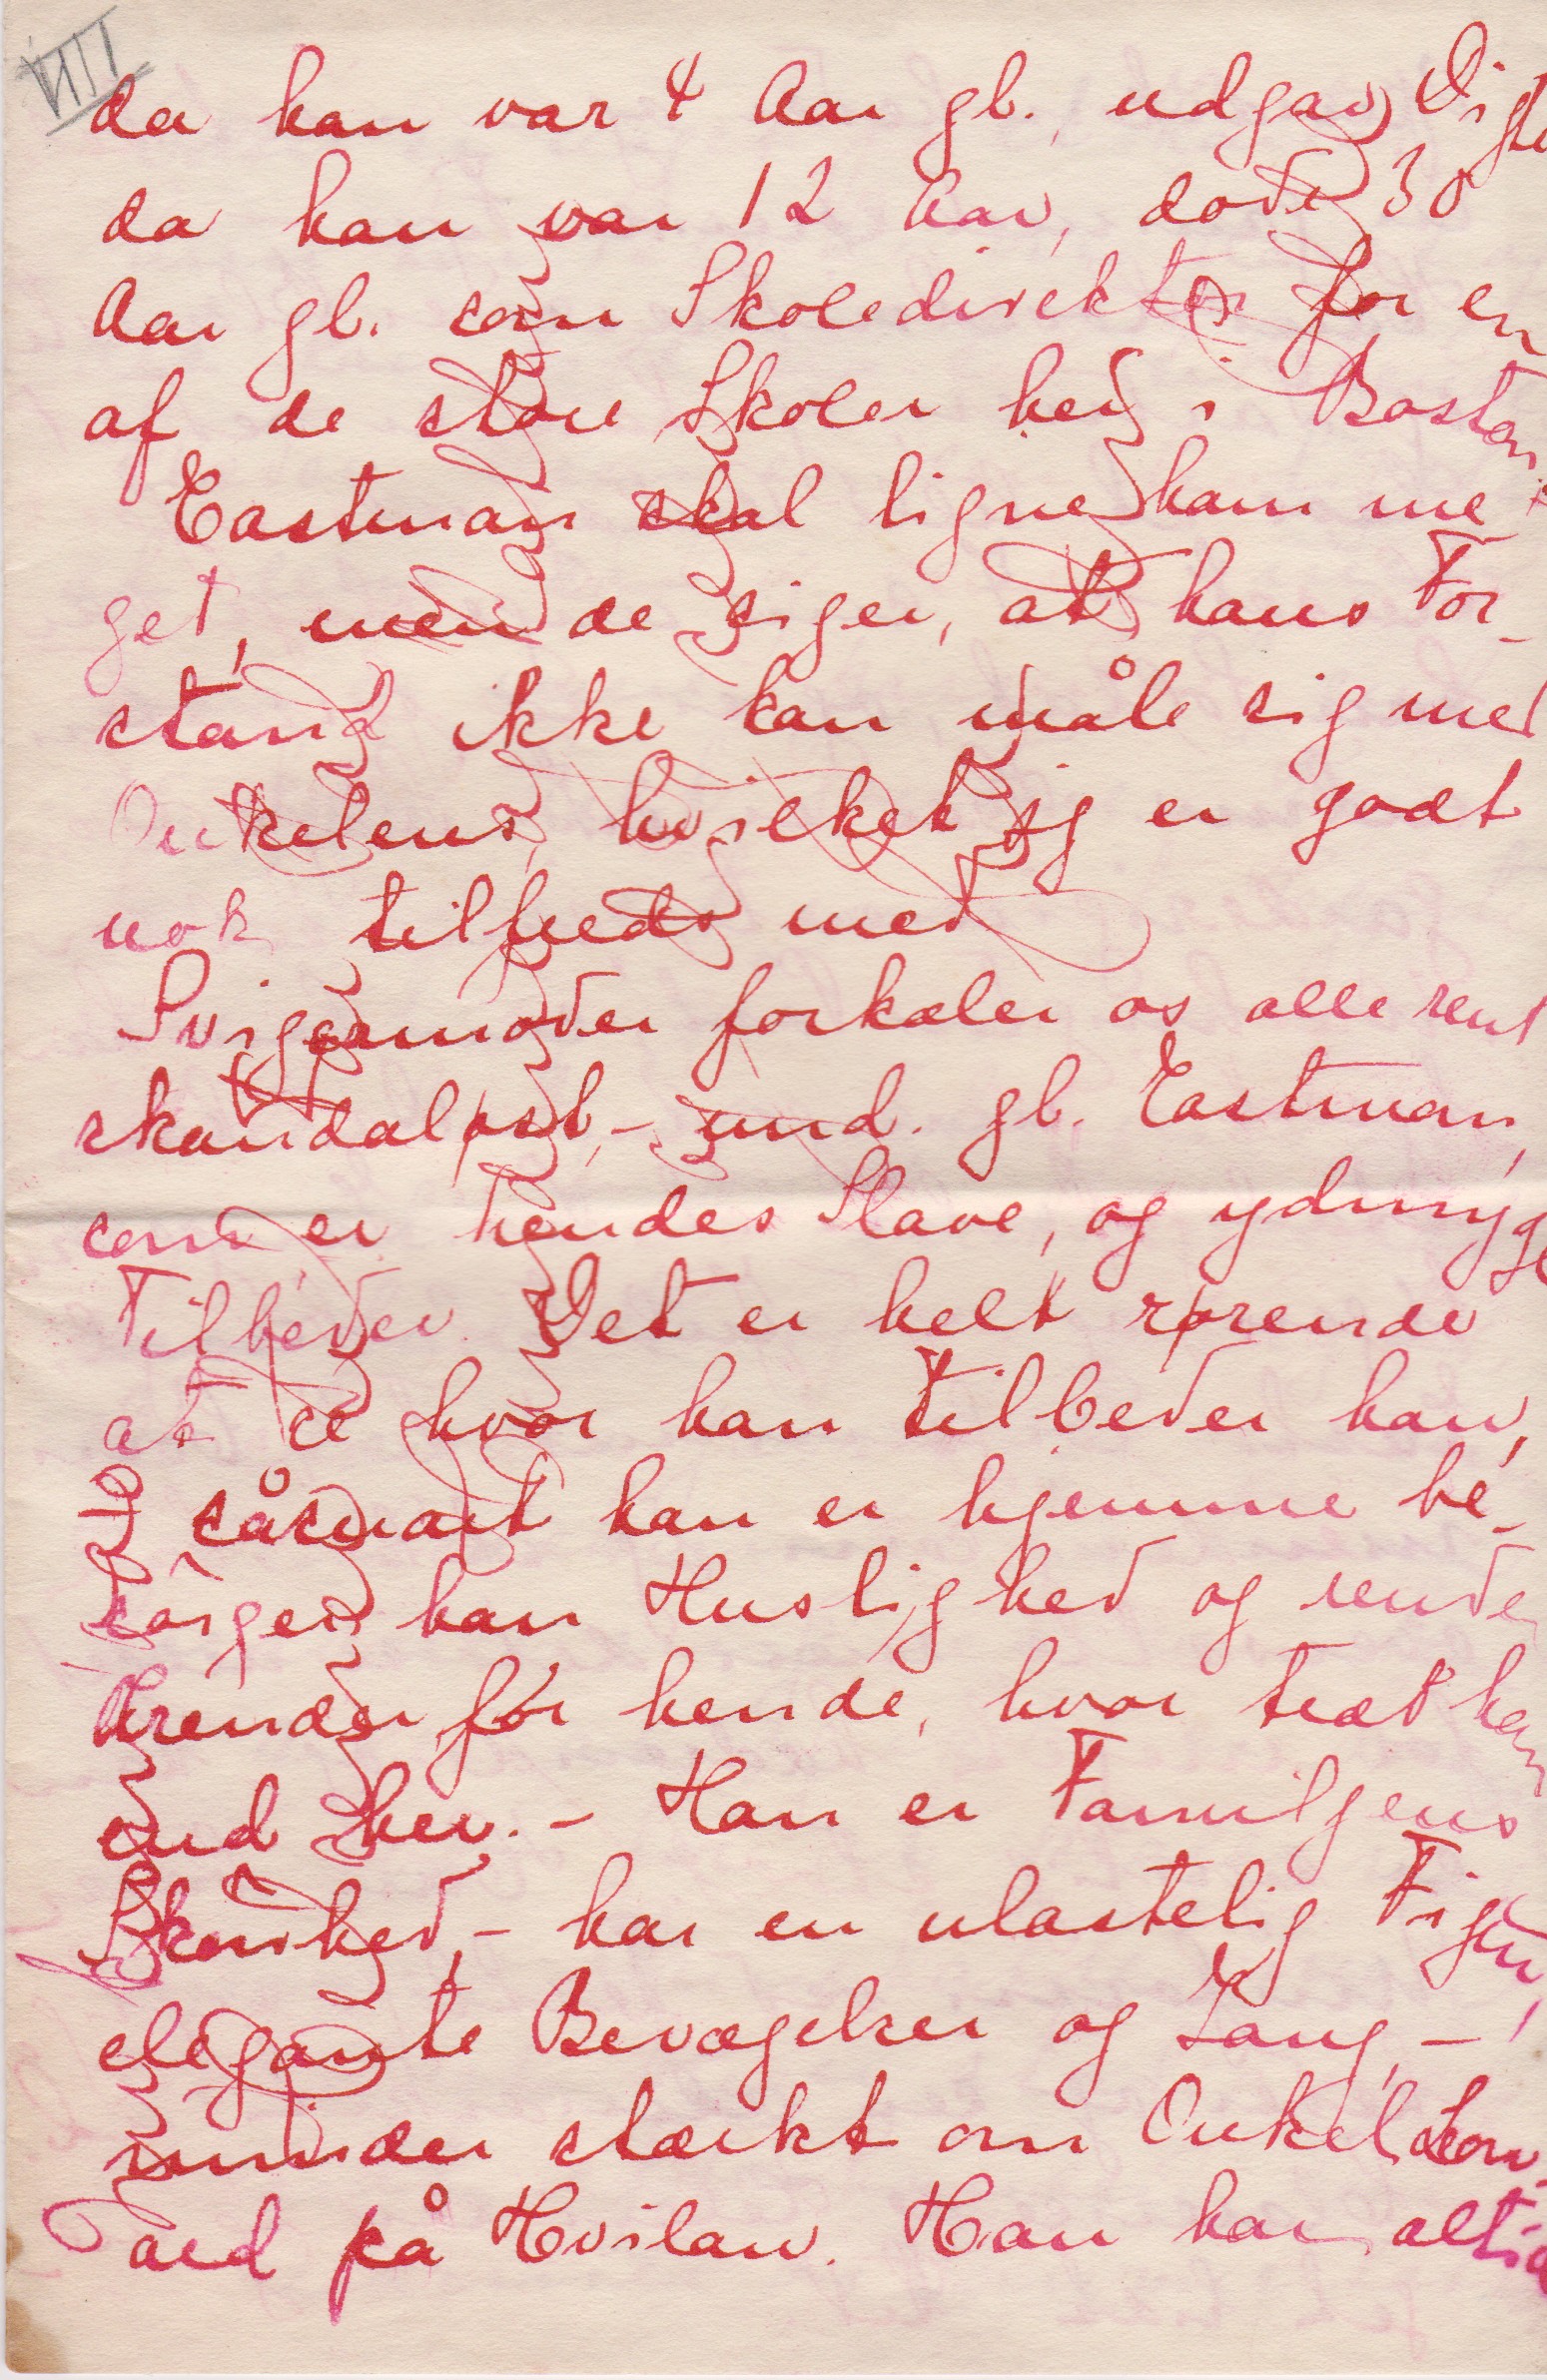 VIII
da han var 4 Aar gl., udgav Digte
da han var 12 Aar, døde 30
Aar gl. som Skoledirektør for en
af de store Skoler her i Boston.
Eastman skal ligne ham me-
get, men de siger, at hans For-
stand ikke kan måle sig med
Onkelens, hvilket jeg er godt
nok tilfreds med
Svigermoder forkæler os alle rent
skandaløst, – und. gl. Eastman,
som er hendes Slave, og ydmyge
Tilbeder. Det er helt rørende
at se hvor han tilbeder han,
såsnart han er hjemme be-
sørger han Huslighed og render
Ærender for hende, hvor træt han
end er. – Han er Familjens
Skønhed, – har en ulastelig Figur,
elegante Bevægelser og Gang, –
minder stærkt om Onkel Leon-
ard på Hvilan. Han har altid